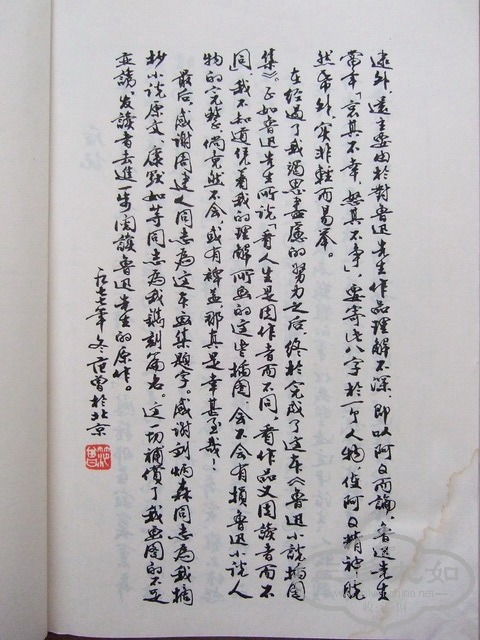 逮外，還主要由於對魯迅先生作品理解不深，即以阿Q而論，魯迅先生
嘗本「哀其不幸，怒其不爭」，要寄此八字於一个人物，使阿Q精神，脱
然帋外，實非輕而易举。
在經過了我竭思盡慮的努力之后，终於完成了這本《魯迅小說插图
集》。正如魯迅先生所说「看人生是因作者而不同，看作品又因讀者而不
同」，我不知道凭着我的理解所画的这些插图，会不会有損魯迅小说人
物的完整，倘竟然不会或有裨益，那真是幸甚至哉！
最后，感谢周建人同志為这本画集題字。感谢刘炳森同志為我摘
抄小说原文、康殷等同志為我鐫刻篇名。这一切補償了我画图的不足
並誘发讀者去進一步阅讀魯迅先生的原作。
一九七七年冬 范曾於北京